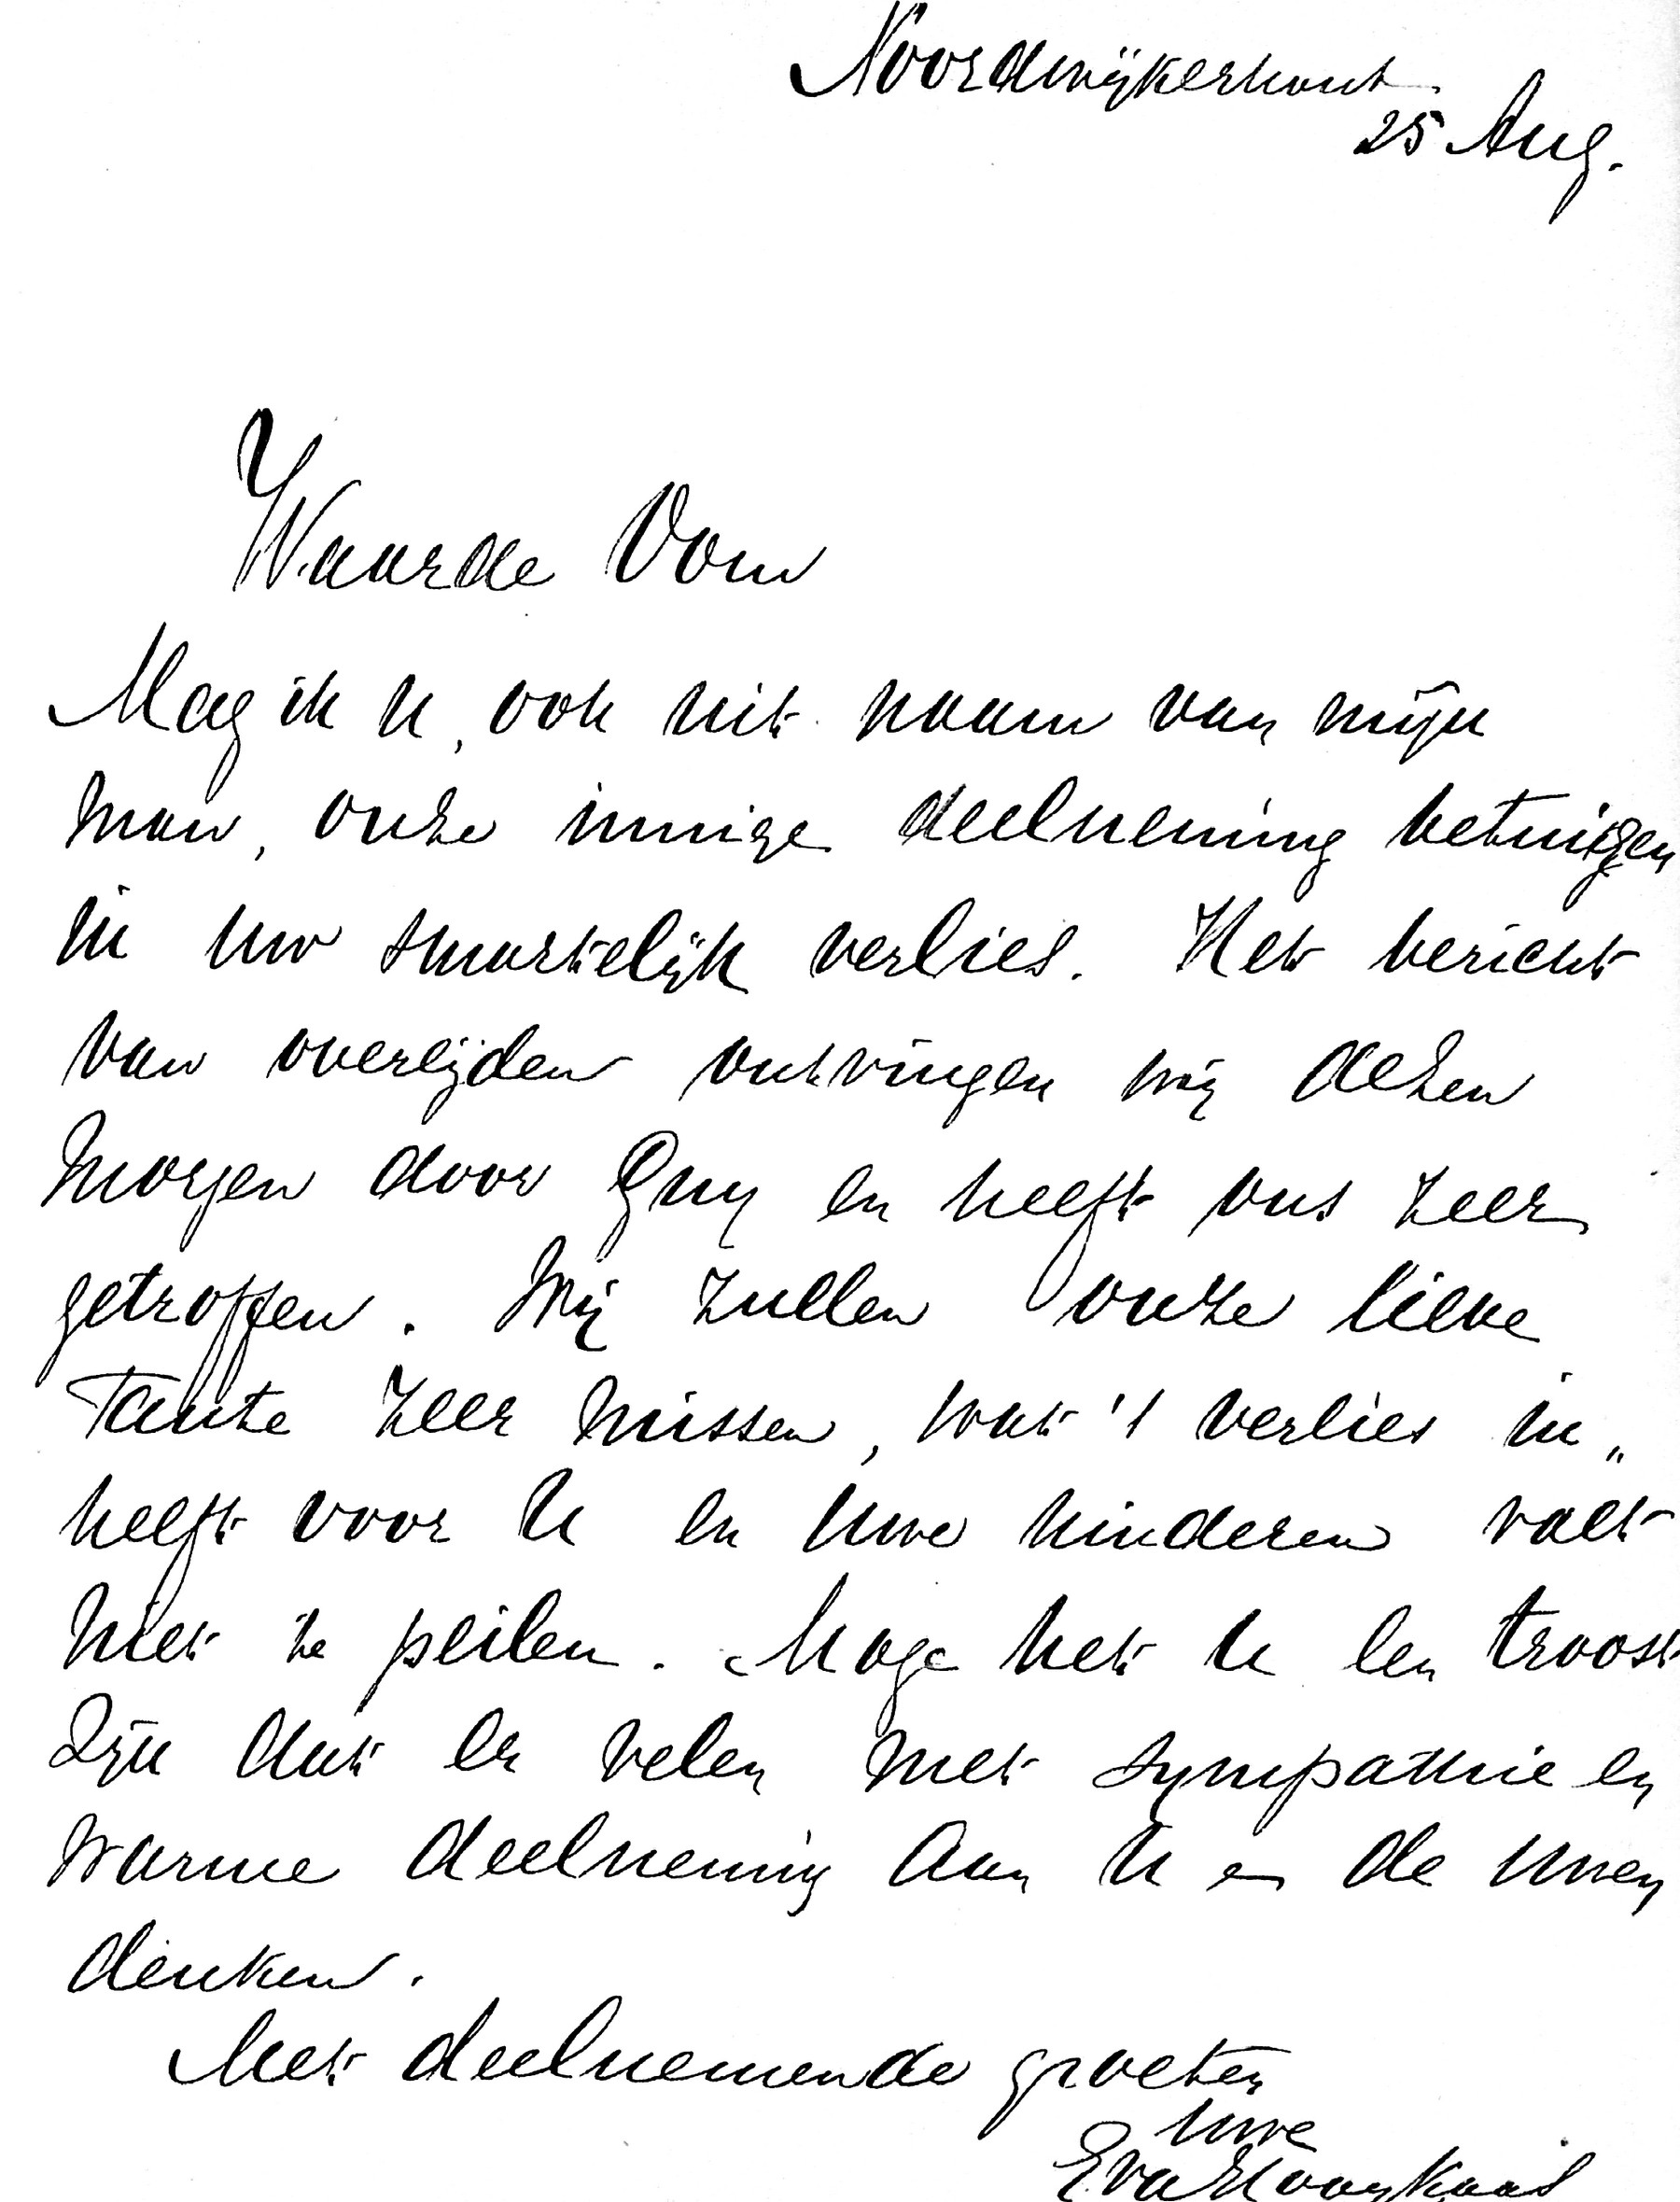 Noordwijkerhout
25 Aug.
Waarde Oom
Mag ik U, ook uit naam van mijn
man, onze innige deelneming betuigen
in Uw smartelijk verlies. Het bericht
van overlijden ontvingen wij dezen
morgen door Guy en heeft ons zeer
getroffen. Wij zullen onze lieve
Tante zeer missen, wat 't verlies in„
heeft voor U en Uwe kinderen valt
niet te peilen. Moge het U een troost
zijn dat er velen met sympathie en
warme deelneming aan U en de Uwen
denken.
Met deelnemende groeten
Uwe
Eva Hooykaas